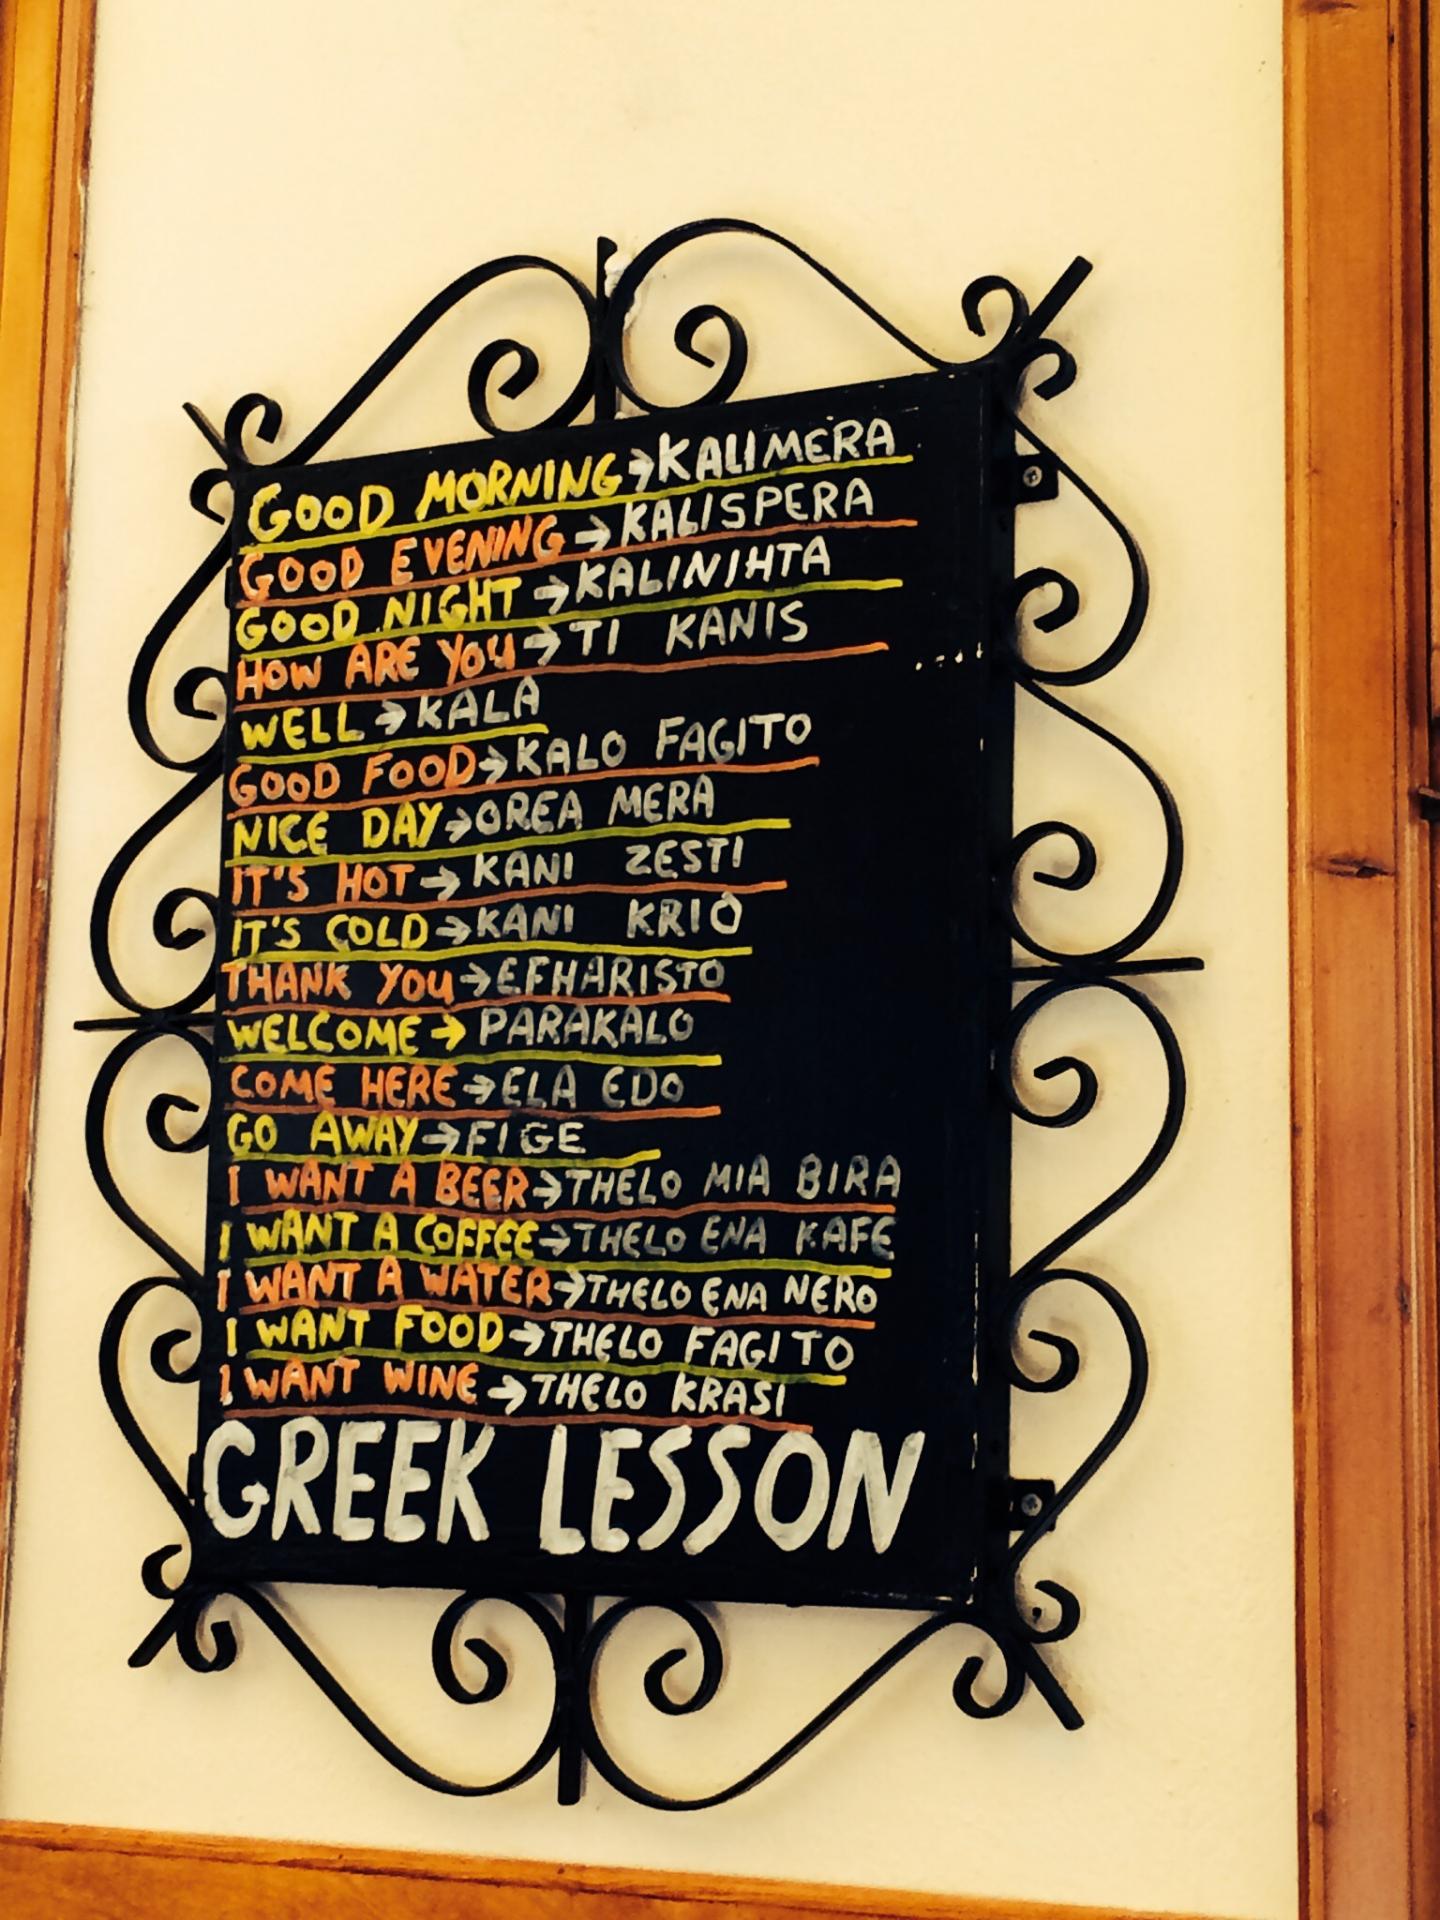 GOOD MORNING → KALIMERA
GOOD EVENING → KALISPERA
GOOD NIGHT → KALINIHTA
HOW ARE YOU → TI KANIS
WELL → KALA
GOOD FOOD → KALO FAGITO
NICE DAY → OREA MERA
IT'S HOT → KANI ZESTI
IT'S COLD → KANI KRIO
THANK YOU → EFHARISTO
WELCOME → PARAKALO
COME HERE → ELA EDO
GO AWAY → FIGE
I WANT A BEER → THELO MIA BIRA
I WANT A COFFEE → THELO ENA KAFE
I WANT A WATER → THELO ENA NERO
I WANT FOOD → THELO FAGITO
I WANT WINE → THELO KRASI
GREEK LESSON